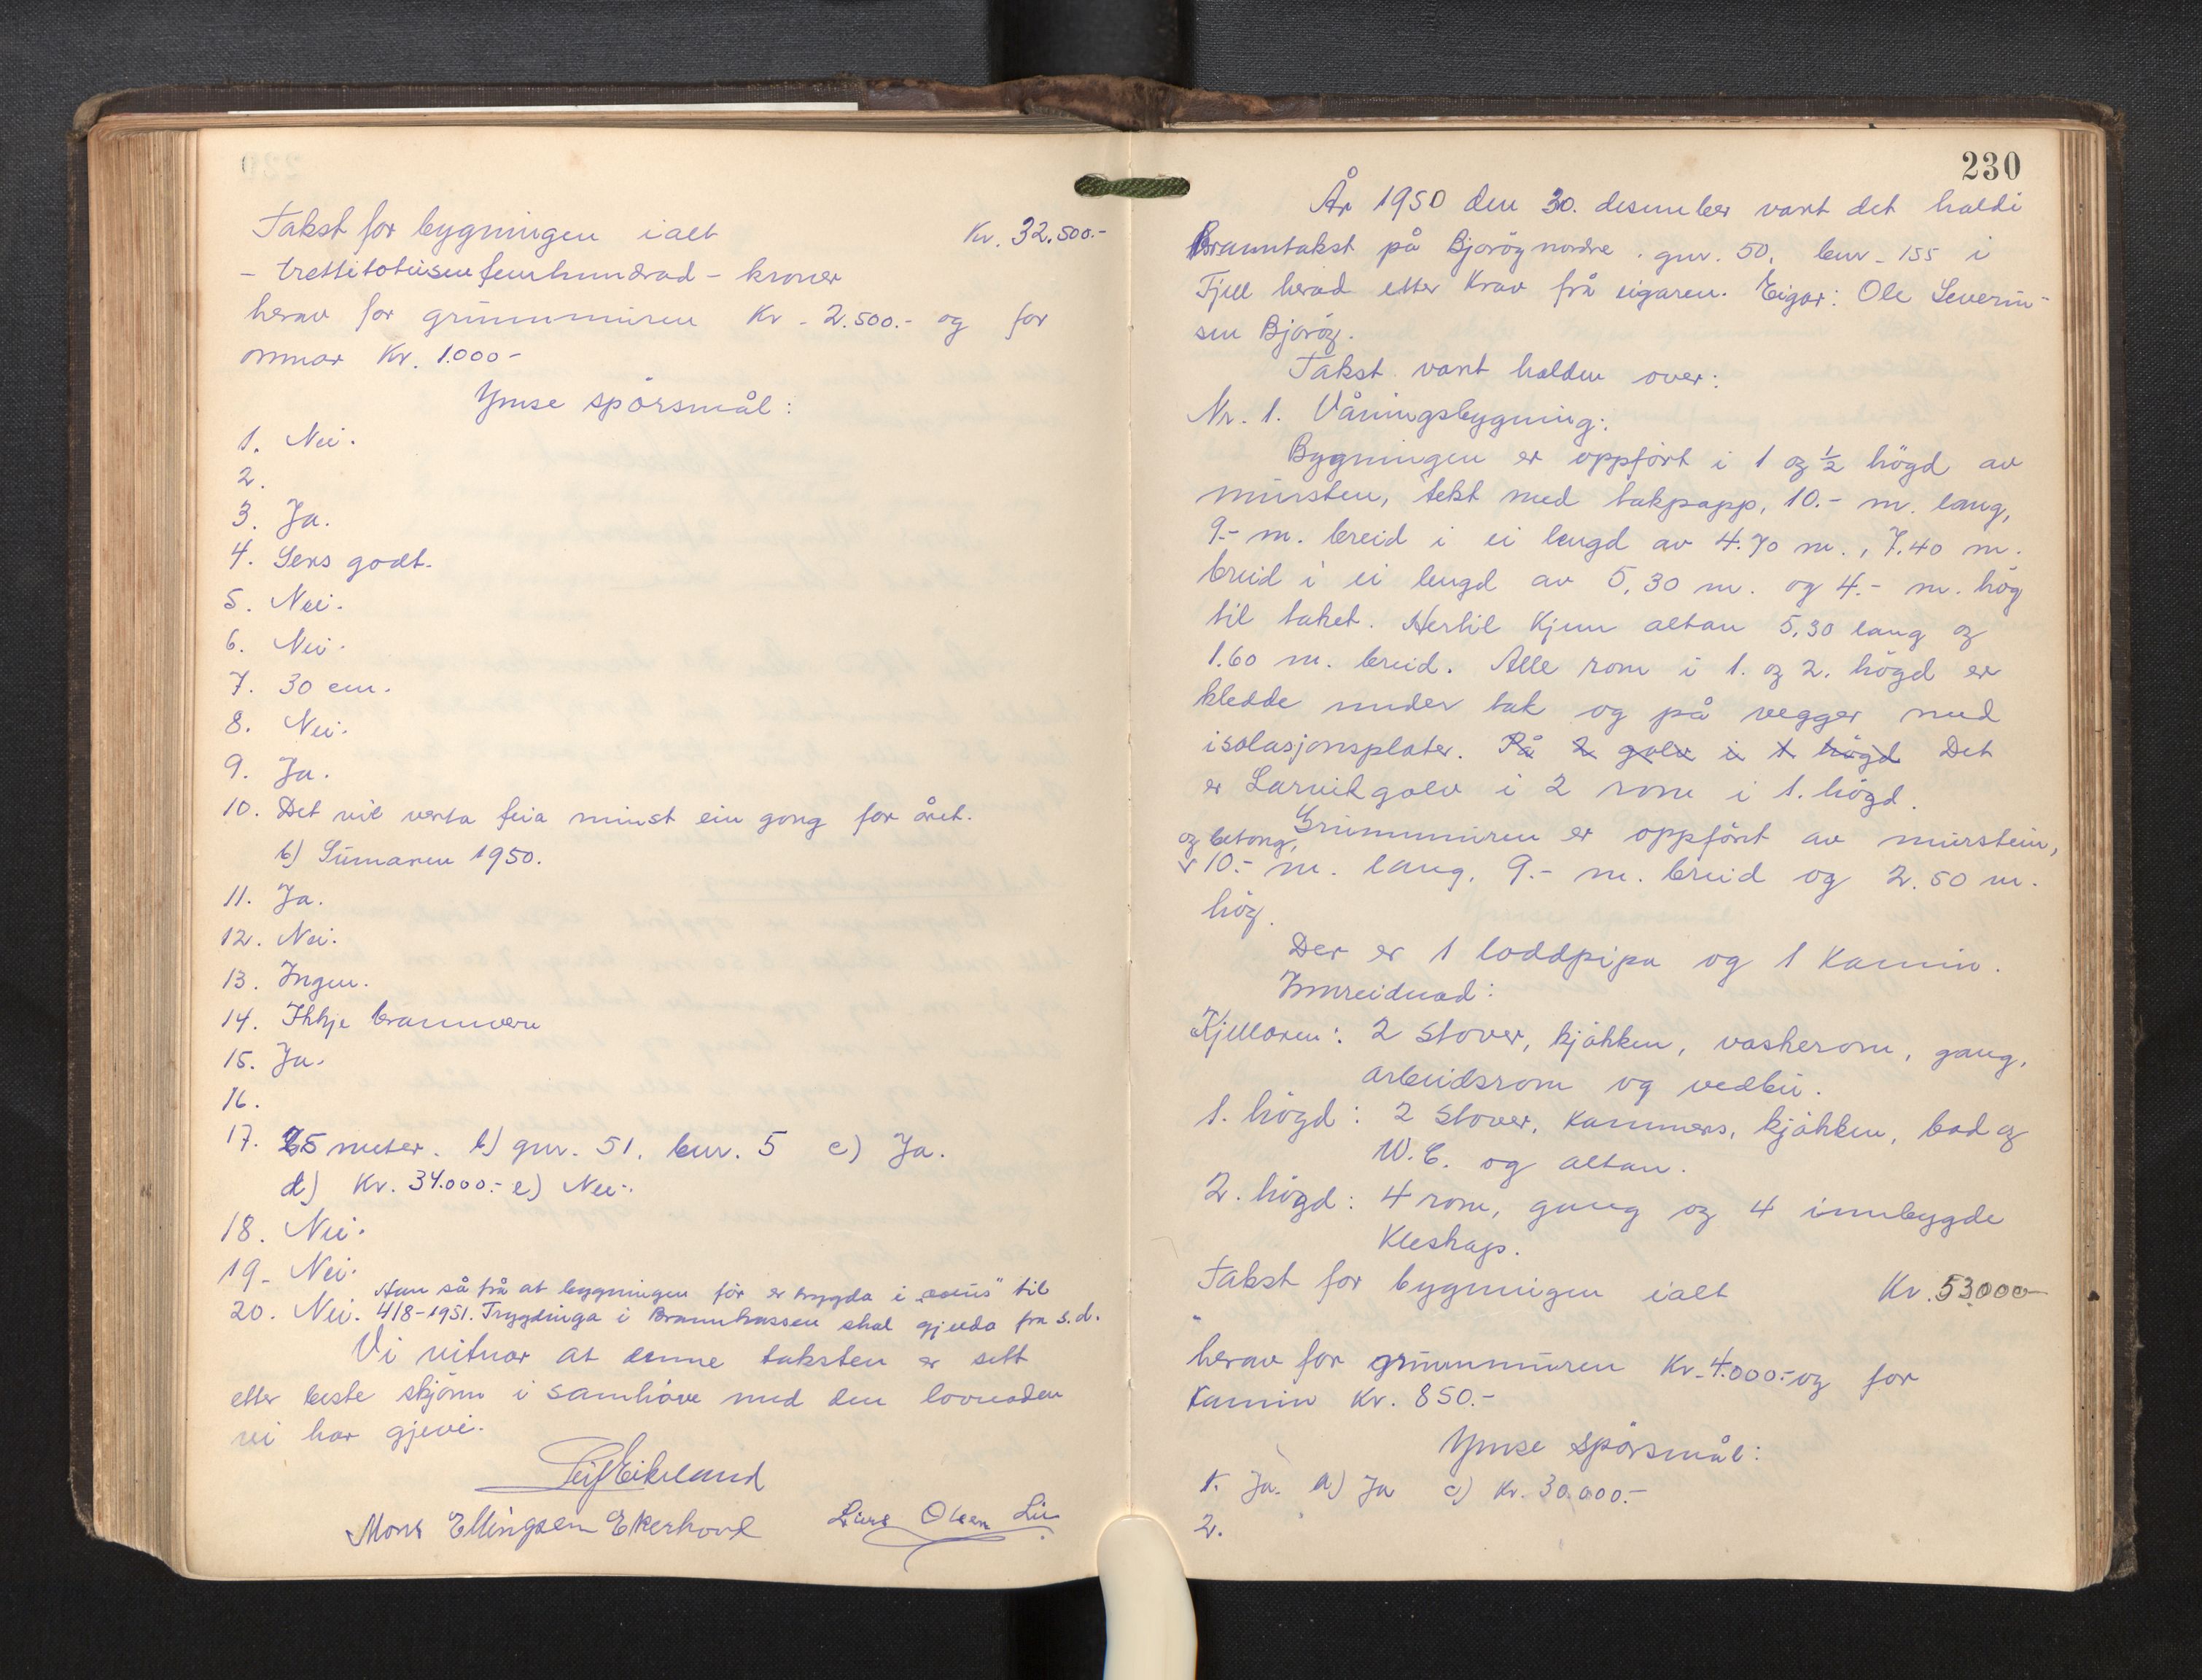 Takst for bygningen ialt Kr. 32.500.-
- trettitotusenfemhundrad - kroner
herav for grunnmuren Kr. 2.500.- og for
omnar Kr. 1.000-
Ymse spörsmål:
1. Nei.
2.
3. Ja.
4. Sers godt.
5. Nei.
6. Nei.
7. 30 cm.
8. Nei.
9. Ja.
10. Det vil verta feia minst ein gong for året.
b) Sumaren 1950.
11. Ja.
12. Nei.
13. Ingen.
14. Ikkje brannvern
15. Ja.
16.
17. 25 meter. b) gnr. 51, bnr. 5 c) Ja.
d) Kr. 34.000.- e) Nei.
18. Nei.
19. Nei.
20. Nei. Han sa frå at bygningen för er trygda i til
4/8-1951. Trygdinga i Brannkassen skal gjelda fra s.d.
Vi vitnar at denne taksten er sett
etter beste skjönn i samhöve med den lovnaden
vi har gjevi.
Leif Eikeland
Mons Ellingsen Ekerhovd Lars Olsen Lie
230
År 1950 den 30. desember vart det haldi
Branntakst på Bjoröy nordre. gnr. 50, bnr. 155 i
Fjell herad etter Krav frå eigaren. Eigar: Ole Severin-
sen Bjoröy.
Takst vart halden over:
Nr. 1. Våningsbygning:
Bygningen er oppfört i 1 og ½ högd av
mursten, tekt med takpapp, 10.- m. lang,
9.- m. breid i ei lengd av 4.70 m., 7.40 m.
breid i ei lengd av 5,30 m. og 4.- m. hög
til taket. Hertil Kjem altan 5,30 lang og
1.60 m. breid. Alle rom i 1. og 2. högd er
kledde under tak og på vegger med
isolasjonsplater. På 2 golv i 1 högd Det
er Larvikgolv i 2 rom i 1. högd.
Grunnmuren er oppfört av murstein,
og betong,
10.- m. lang, 9.- m. breid og 2.50 m.
hög.
Der er 1 loddpipa og 1 Kamin.
Innreidnad:
Kjellaren: 2 stover, kjökken, vaskerom, gang,
arbeidsrom og vedbu.
1. högd: 2 stover, Kammers, kjökken, bad og
W.C. og altan.
2. högd: 4 rom, gang og 4 innbygde
Kleskaps.
Takst for bygningen ialt Kr. 53.000-
herav for grunnmuren Kr. 4.000.- og for
Kamin Kr. 850.-
Ymse spörsmål:
1. Ja. a) Ja c) Kr. 30.000.-
2.